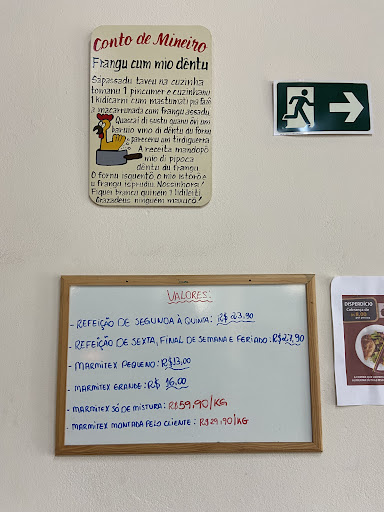 Conto de Mineiro
Frangu cum mio dêntu
Sapassadu taveu na cuzinha
tomanu 1 pincumer e cuzinhanu
1 kidicarni cum mastumati pra fazê
a macarronada cum frangu assadu.
Quascaí di sustu quanu ôvi um
barruio vino di dêntu du fornu
parecenu um tirdiguerra
A receita mandopô
mio di pipoca
dêntu du frangu
O fornu isquentô, o mio istorô e
u frangu ispludiu. Nossinhora!
Fiquei brancu quinein 1 lidileiti.
Grazadeus ninguém maxucô!
VALORES:
- REFEIÇÃO DE SEGUNDA À QUINTA: R$ 23,90
- REFEIÇÃO DE SEXTA, FINAL DE SEMANA E FERIADO: R$27,90
- MARMITEX PEQUENO: R$13,00
- MARMITEX GRANDE: R$ 16,00
- MARMITEX SÓ DE MISTURA: R$59,90/KG
- MARMITEX MONTADA PELO CLIENTE: R$29,90/KG
DISPERDÍCIO
Cobrança de